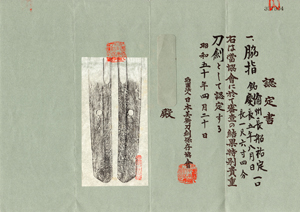 認定書
一、脇指
銘 備州長船祐定 一口
長 一尺六寸四分
右は當協會に於て審査の結果特別貴重
刀剣として認定する
昭和五十年四月二十日
財團法人日本美術刀剣保存協會
殿